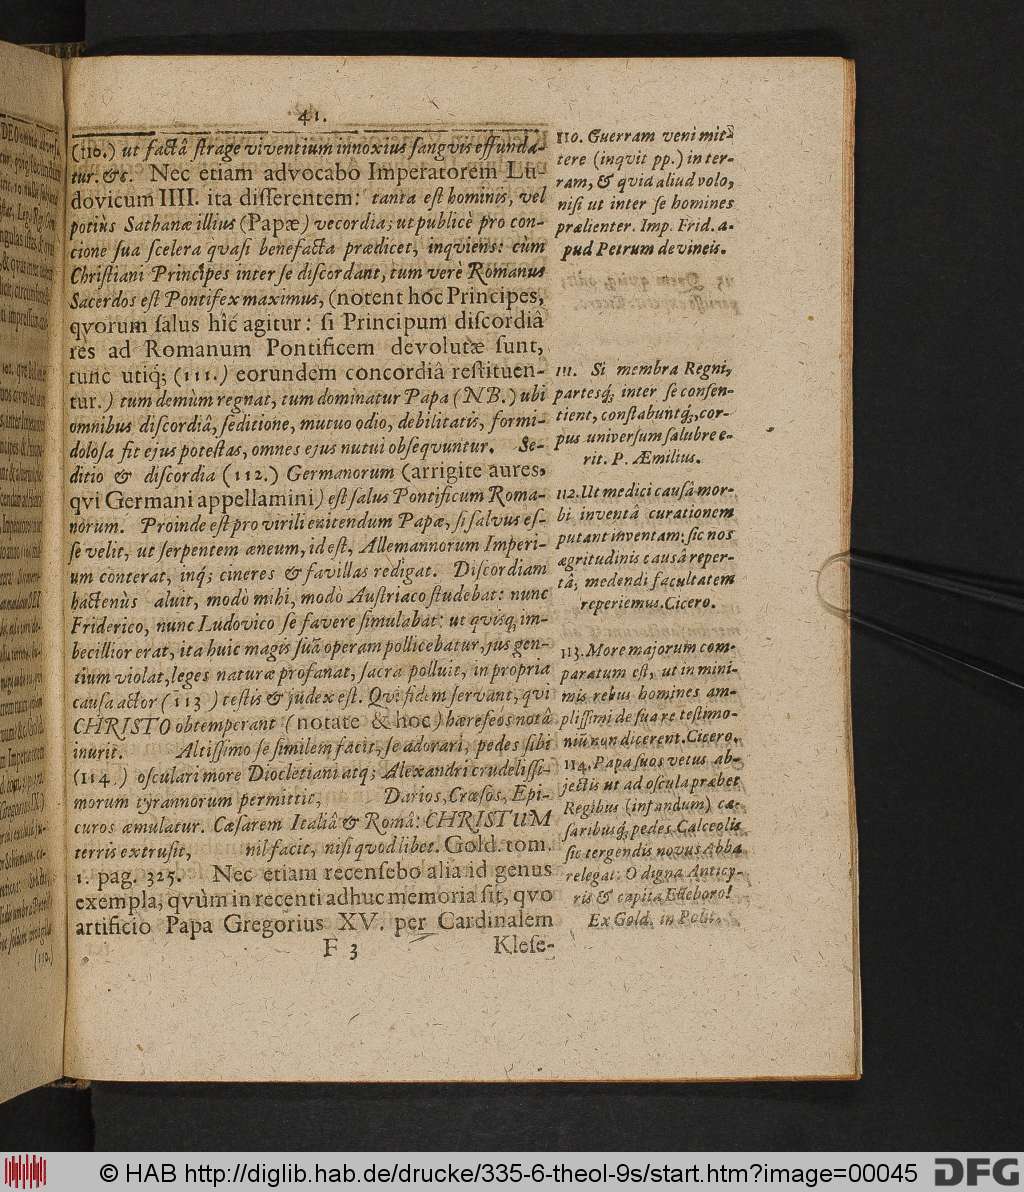 41.
(110.) ut factâ ſtrage viventium innoxius ſangvis effunda-
tur. &c. Nec etiam advocabo Imperatorem Lu-
dovicum IIII. ita diſſerentem: tanta eſt hominis, vel
potiùs Sathanæ illius (Papæ) vecordia; ut publicè pro con-
cione ſua ſcelera quaſi benefacta prædicet, inqviens: cùm
Chriſtiani Principes inter ſe diſcordant, tum verè Romanus
Sacerdos eſt Pontifex maximus, (notent hoc Principes,
qvorum ſalus hîc agitur: ſi Principum diſcordiâ
res ad Romanum Pontificem devolutæ ſunt,
tunc utiq́; (111.) eorundem concordiâ reſtituen-
tur.) tum demùm regnat, tum dominatur Papa (NB.) ubi
omnibus diſcordiâ, ſeditione, mutuo odio, debilitatis, formi-
doloſa fit ejus poteſtas, omnes ejus nutui obſeqvuntur. Se-
ditio & diſcordia (112.) Germanorum (arrigite aures,
qvi Germani appellamini) eſt ſalus Pontificum Roma-
norum. Proinde eſt pro virili enitendum Papæ, ſi ſalvus eſ-
ſe velit, ut ſerpentem æneum, id eſt, Allemannorum Imperi-
um conterat, inq́; cineres & favillas redigat. Diſcordiam
hactenùs aluit, modò mihi, modò Auſtriaco ſtudebat: nunc
Friderico, nunc Ludovico ſe favere ſimulabat: ut quisq́ im-
becillior erat, ita huic magis ſuã operam pollicebatur, jus gen-
tium violat, leges naturæ profanat, ſacra polluit, in propria
cauſa actor (113) teſtis & judex eſt. Qvi fidem ſervant, qvi
CHRISTO obtemperant (notate & hoc) hæreſeos notâ
inurit. Altiſſimo ſe ſimilem facit, ſe adorari, pedes ſibi
(114.) oſculari more Diocletiani atq; Alexandri crudeliſſi-
morum tyrannorum permittit, Darios, Crœſos, Epi-
curos æmulatur. Cæſarem Italiâ & Româ: CHRISTUM
terris extruſit, nil facit, niſi qvod libet. Gold. tom.
1. pag. 325. Nec etiam recenſebo alia id genus
exempla, qvùm in recenti adhuc memoria ſit, qvo
artificio Papa Gregorius XV. per Cardinalem
F 3 Kleſe-
110. Guerram veni mit-
tere (inqvit pp.) in ter-
ram, & qvid aliud volo,
niſi ut inter ſe homines
prælienter. Imp. Frid. a-
pud Petrum de vineis.
111. Si membra Regni,
partesq́; inter ſe conſen-
tient, conſtabuntq́;, cor-
pus univerſum ſalubre e-
rit. P. Æmilius.
112. Ut medici cauſâ mor-
bi inventâ curationem
putant inventam: ſic nos
ægritudinis cauſâ reper-
tâ; medendi facultatem
reperiemus. Cicero.
113. More majorum com-
paratum eſt, ut in mini-
mis rebus homines am-
pliſſimi de ſua re teſtimo-
niũ non dicerent. Cicero.
114. Papa ſuos vetus ab-
jectis ut ad oſcula præbet
Regibus (infandum) cæ-
ſaribusq́; pedes Calceolis
ſic tergendis novus Abba
relegat: O digna Anticy-
ris & capita Elleboro!
Ex Gold. in Polit.
© HAB http://diglib.hab.de/drucke/335-6-theol-9s/start.htm?image=00045
DFG